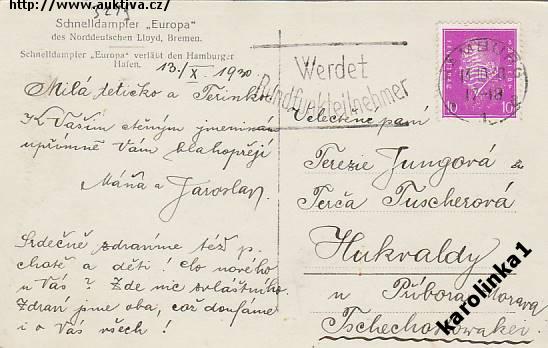 Zdroj: www.auktiva.cz/
5215
Schnelldampfer „Europa"
des Norddeutschen Lloyd, Bremen.
Schnelldampfer „Europa" verläßt den Hamburger
Hafen.
13./X. 1930
Milá tetičko a Terinko!
K Vašim ctěným jmeninám
upřímně Vám blahopřejí
Máňa a Jaroslav.
Srdečně zdravíme též p.
chotě a děti! Co nového
u Vás? Zde nic zvláštního.
Zdraví jsme oba, což doufáme
i o Vás všech!
Werdet
Rundfunkteilnehmer
HAMBURG
17-18
1
10 10
Velectěné paní
Terezie Jungová a
Terča Tuscherová
Hukvaldy
u Příbora Morava
Tschechoslowakei
karolinka1